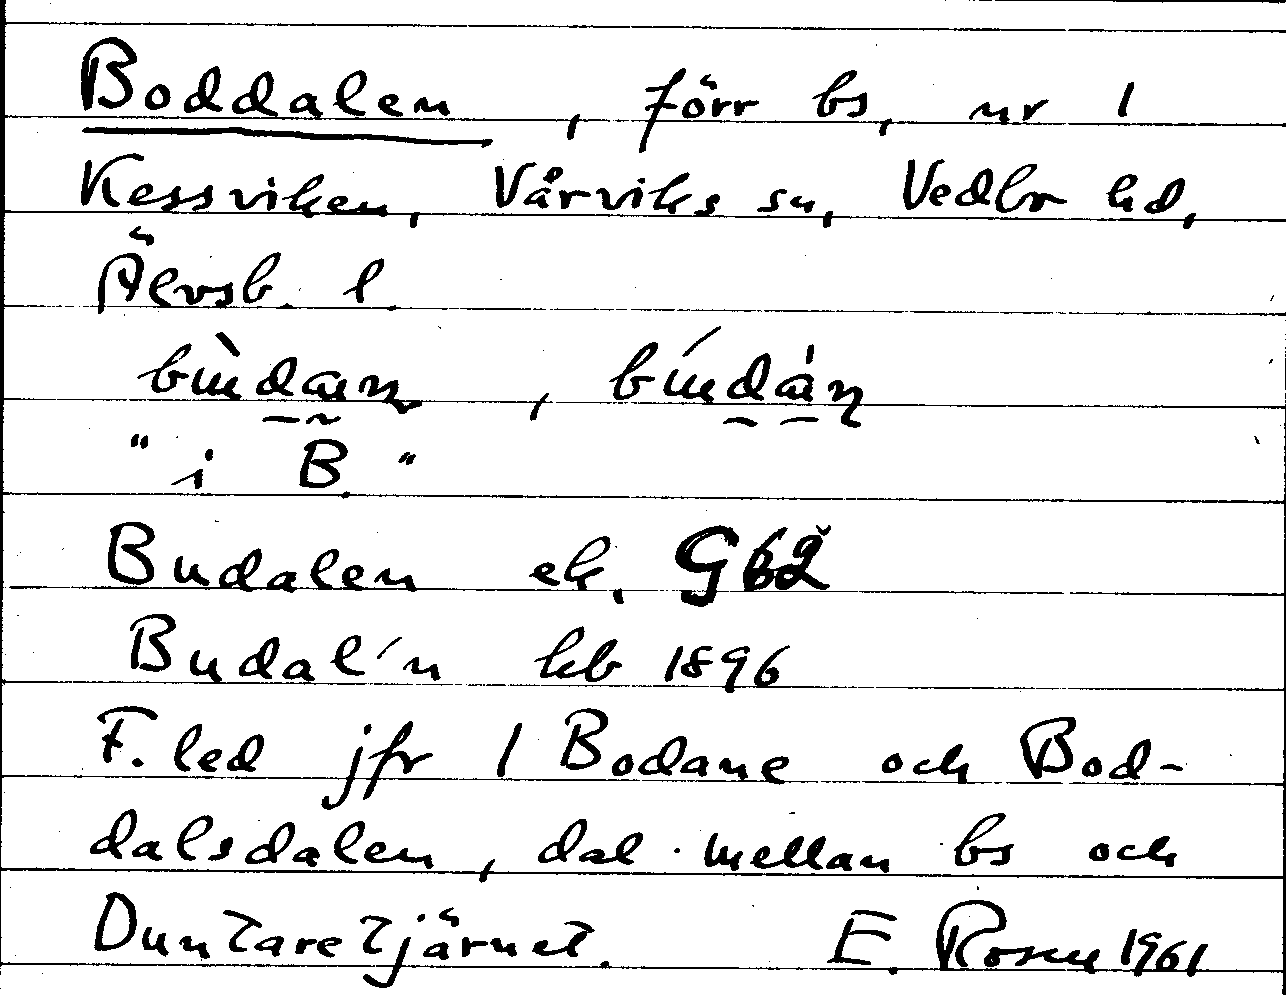 Boddalen, förr bs, nr 1
Kessviken, Vårviks sn, Vedbo hd,
Älvsb. l.
"i B."
Budalen ek. G62
Budal'n kb 1896
F.led jfr 1 Bodane och Bod-
dalsdalen, dal mellan bs och
Duntaretjärnet. E. Rosen 1961